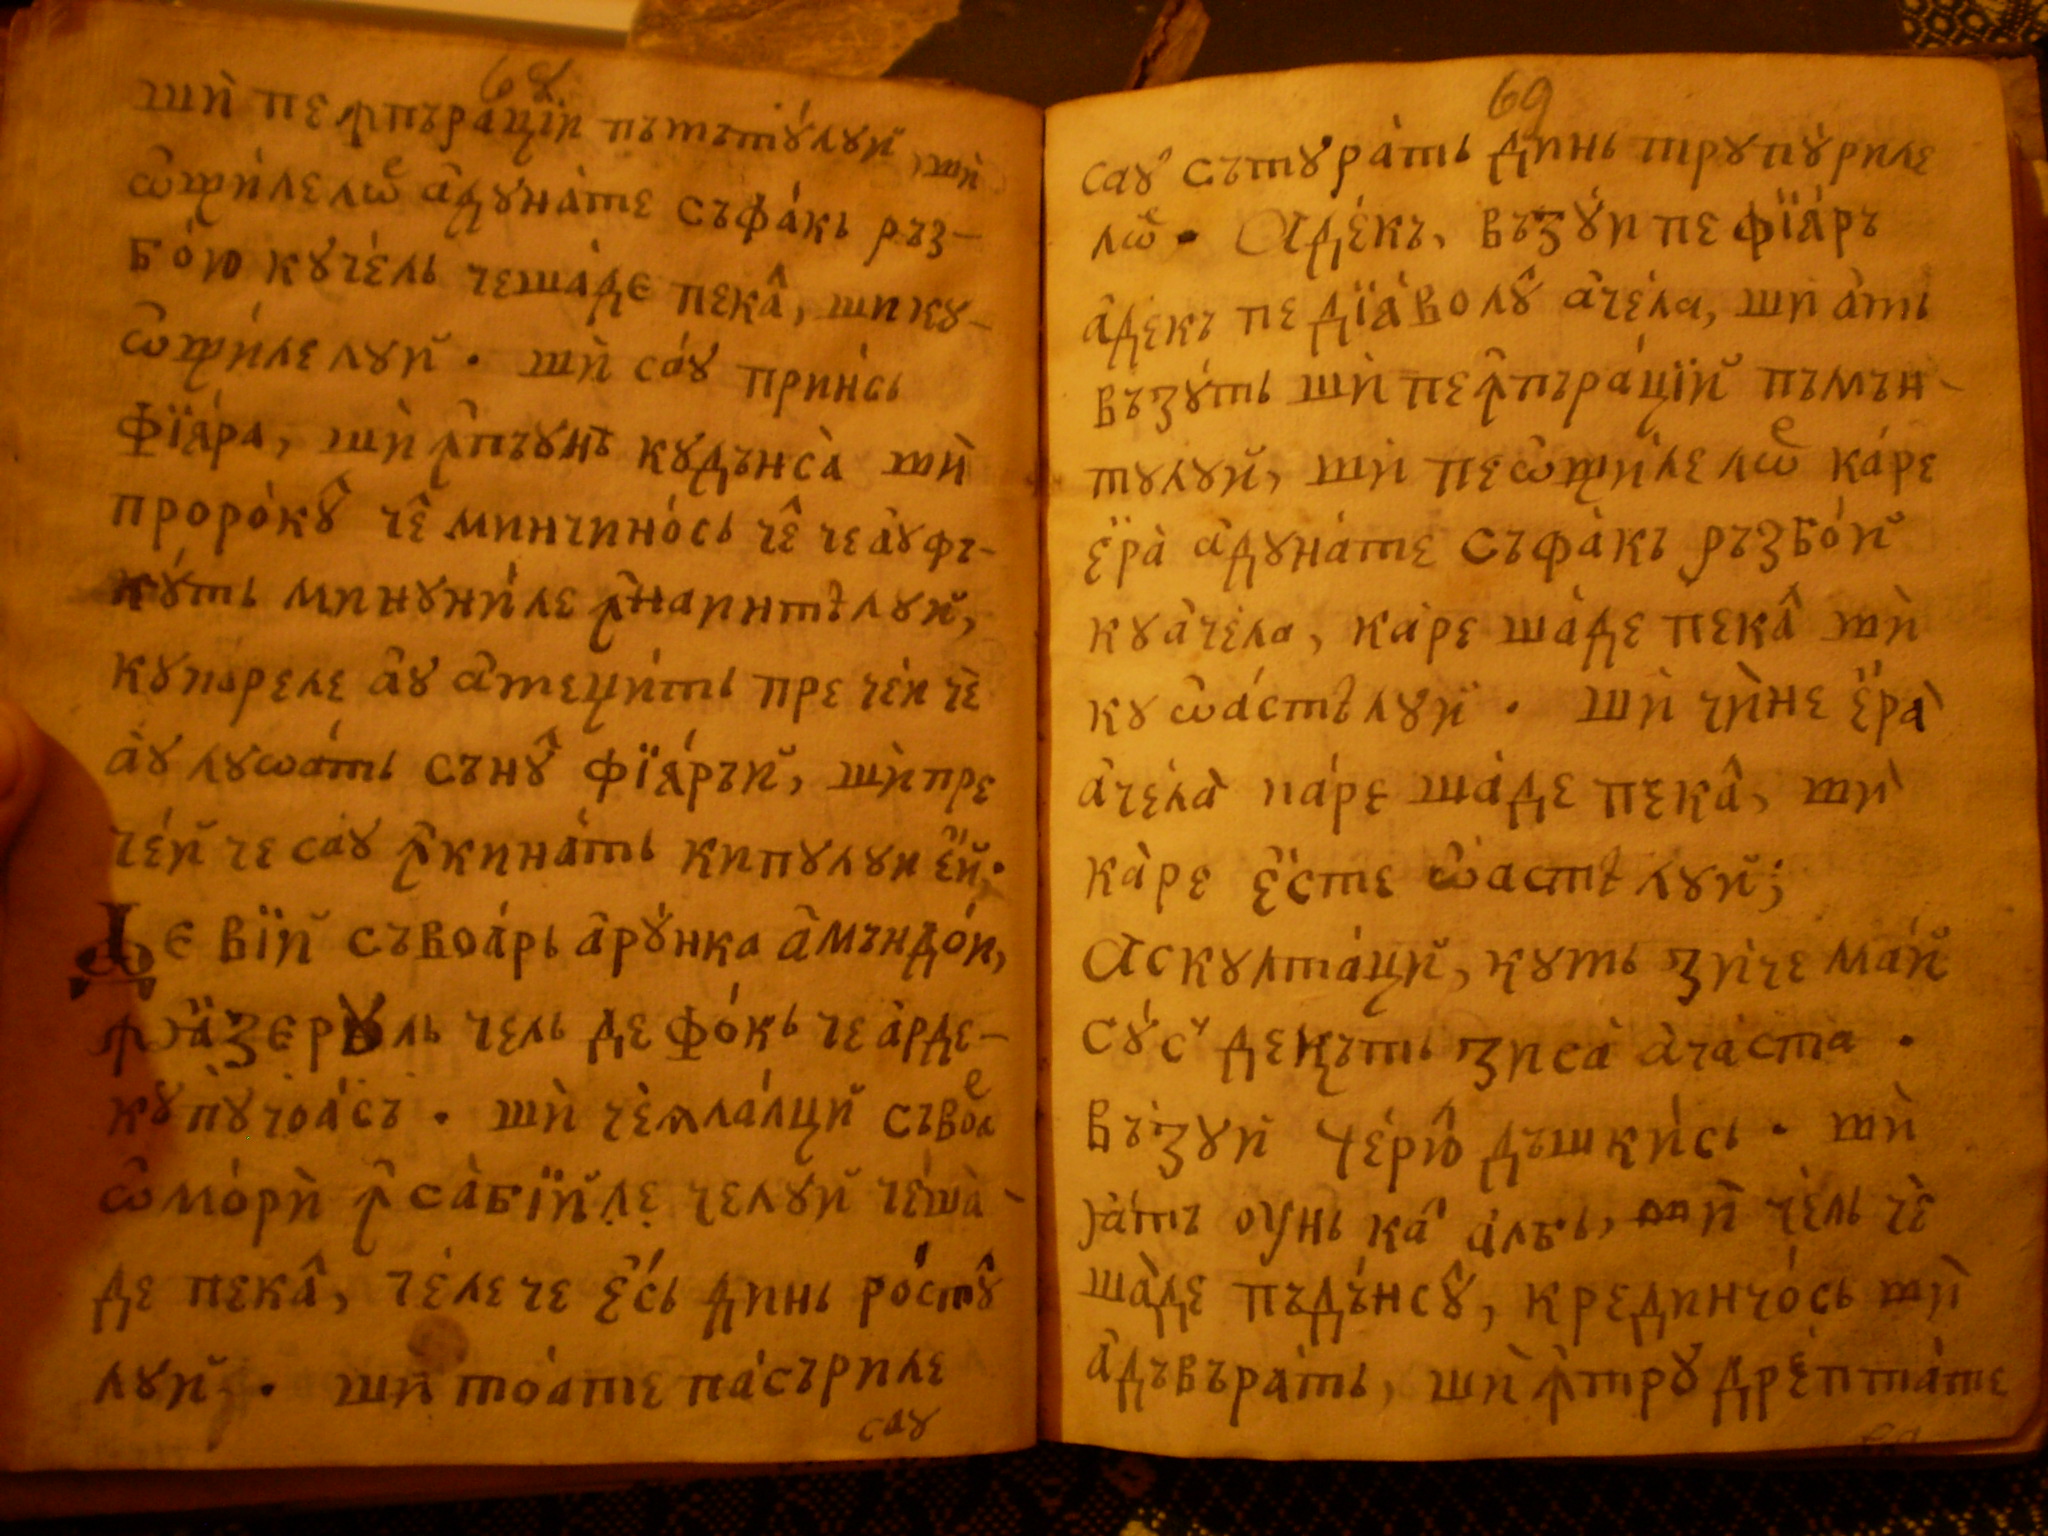 68
шѝ пе ꙟпъра́цїй пъмъ́тꙋлꙋй, шѝ
ѡ҆щи́лелѡⷬ҇ а҆дꙋна́те съфа́къ ръз-
бо́ю кꙋче́ль чешаде пекал҆, ши кꙋ-
ѡ҆щи́лелꙋй. шѝ са́ꙋ при́нсь
фїа́ра, шѝ ꙟпъꙋнъ кꙋдънса̀ шѝ
проро́кꙋ̂ че̂ минчино́сь че̂ чеа́ꙋфъ-
кꙋ́ть минꙋни́ле ꙟнаинтѣлꙋй,
кꙋка́реле а҆ꙋ а҆меци́ть пре че́и чѐ
а҆ꙋ лꙋѡа́ть съну̂ фїа́ръй, шѝ пре
че́й че са́ꙋ ꙟкина́ть кипꙋлꙋи е҆й.
Де вїй съвоа́рь а҆рꙋ́нка а҆мъндо́и,
ꙟ їа́зерꙋль чель де фо́кь че а́рде-
кꙋ пꙋчоа́съ. шѝ че́ялалци́ съвоⷬ҇
ѡ҆мо́рѝ ꙟ са̀бїйле челꙋй че́ша̀-
де пека̂л, че́лече е҆́сь динь ро́стꙋ̂
лꙋй. шѝ то́ате па́съриле
саꙋ
69
саꙋ сътꙋра́ть динь трꙋпꙋ́риле
лѡⷬ҇. Аде́къ, възꙋ́и пе фїа́ръ
а́декъ пе дїа́волꙋ̂ а҆че́ла, шѝ а́ть
възꙋ́ть шѝ пеꙟпъра́цїй пъмън-
тꙋлꙋй, шѝ пеѡ҆щи́ле лѡⷬ҇ ка́ре
е҆ра̀ а҆дꙋна́те съфа̀къ ръзбо́й
кꙋа҆че́ла, ка̀ре ша̀де пека̂л шѝ
кꙋ ѡ҆а́стѣ лꙋй. шѝ чѝне е҆ра̀
а҆че́ла̀ ка́ре ша́де пека̂л, шѝ
ка̀ре е҆́сте ѡ҆а́стѣ лꙋй;
Аскꙋлта́цй, кꙋть зи́че ма́й
сꙋ́сꙋ декъть зиса̀ а҆ча́ста.
Възꙋй че́рю̂ дъшки́сь. шѝ
ꙗ́тъ оунь ка́л а́лбь, шѝ че́ль чѐ
ша̀де пъдъ́нсꙋ̂, крединчо́сь шѝ
а҆дъвъра́ть, шѝ ꙟтрꙋ̂ дрѐптате